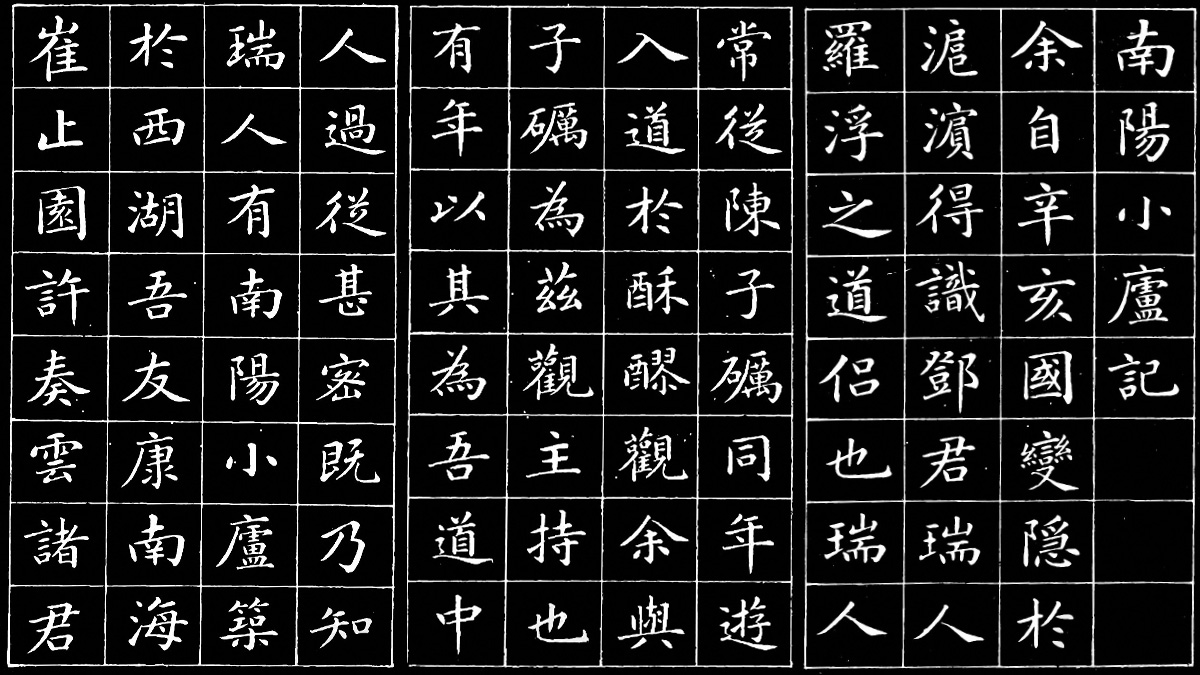 南陽小廬記
余自辛亥國變隱於
滬濵得識鄧君瑞人
羅浮之道侣也瑞人
常從陳子礪同年遊
入道於酥醪觀余與
子礪為茲觀主持也
有年以其為吾道中
人過從甚密既乃知
瑞人有南陽小廬築
於西湖吾友康南海
崔止園許奏雲諸君